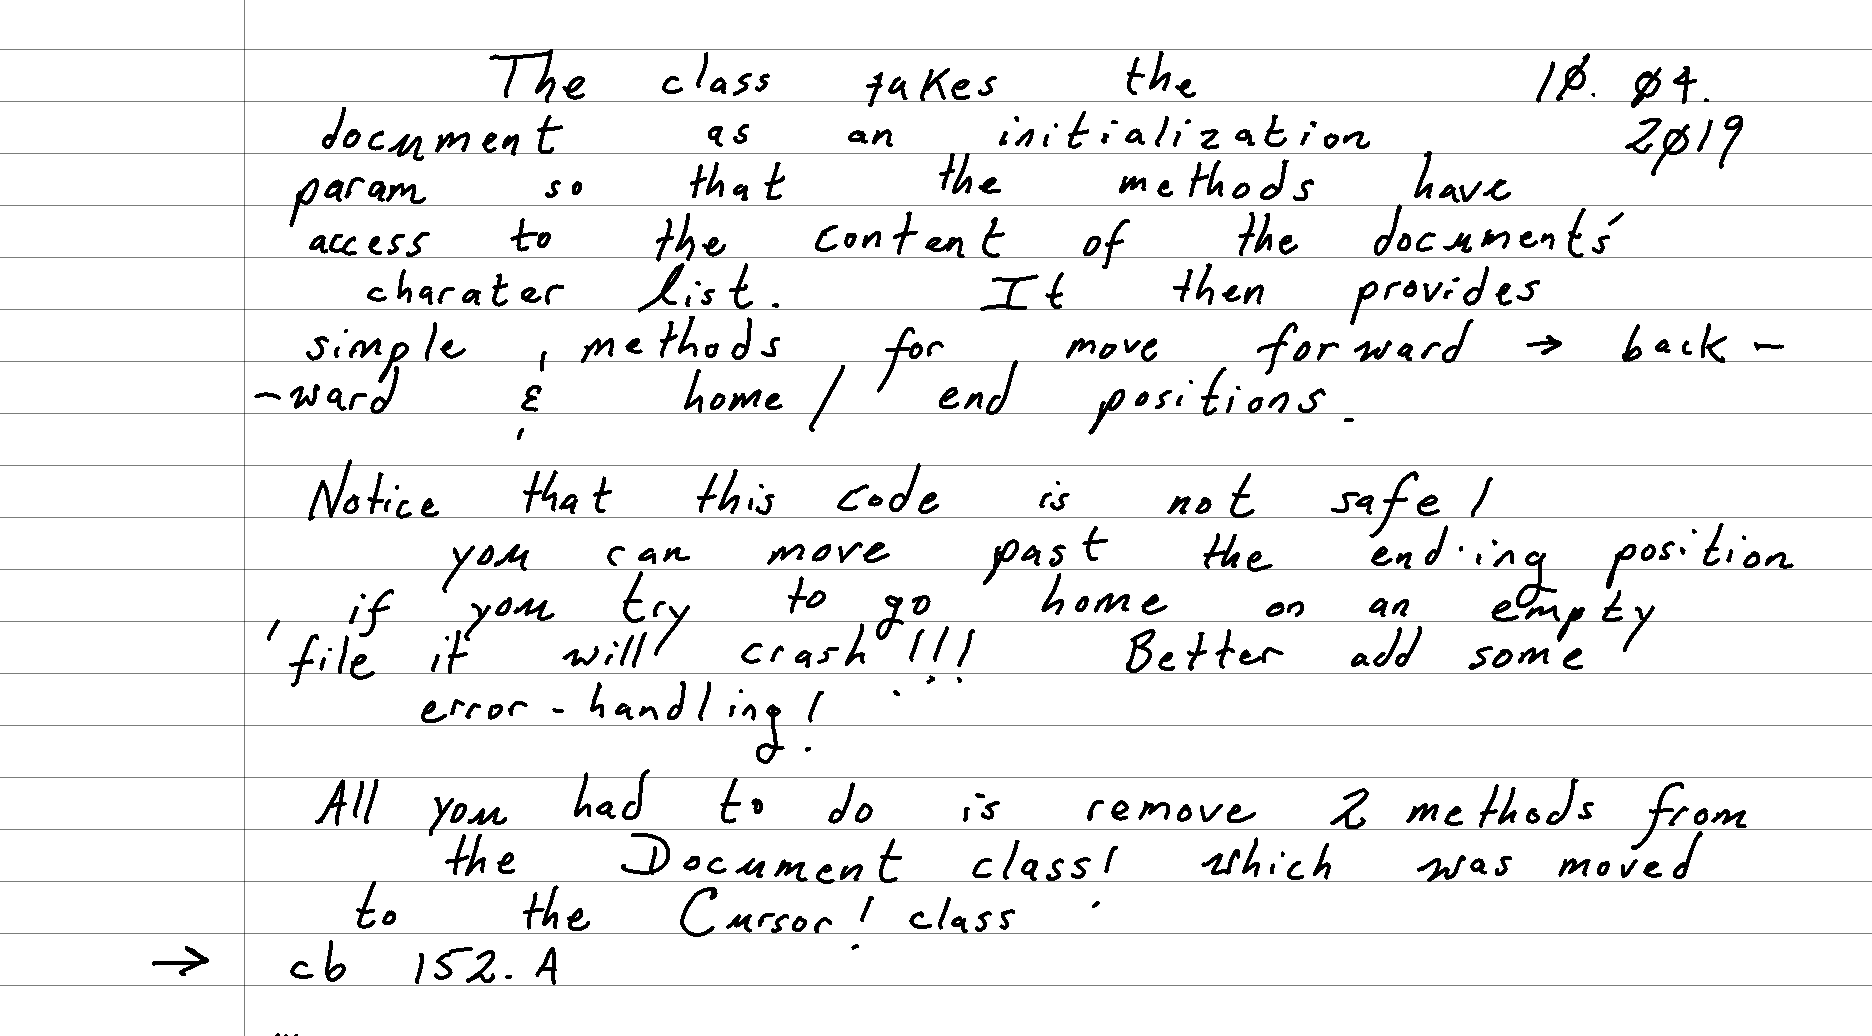 The class takes the 10. 04.
document as an initialization 2019
param so that the methods have
access to the content of the document's
charater list. It then provides
simple methods for move forward → back-
-ward & home/ end positions.
Notice that this code is not safe!
you can move past the end·ing position
, if you try to go home on an empty
file it will crash!!! Better add some
error-handling!
All you had to do is remove 2 methods from
the Document class! which was moved
to the Cursor! class
→ cb 152.A